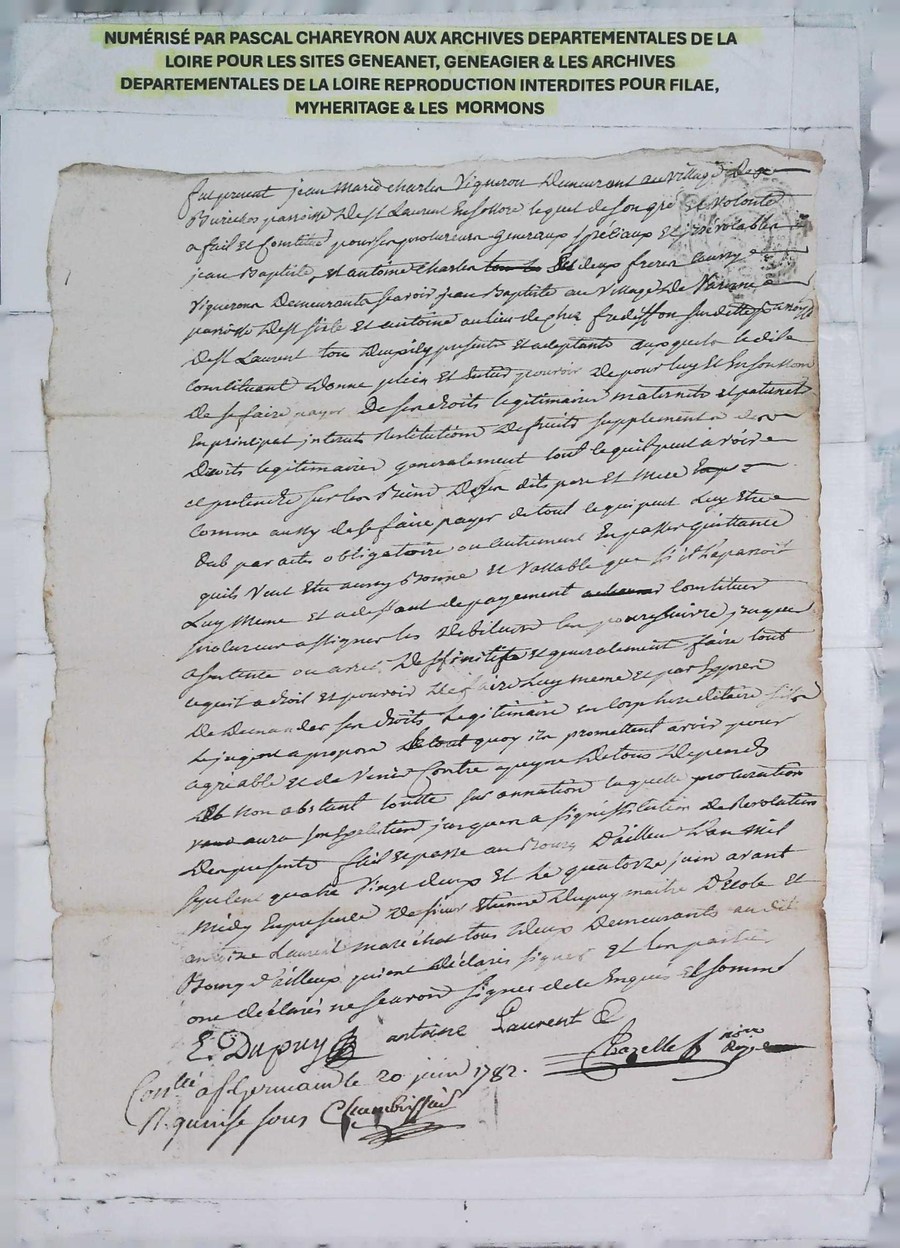 NUMÉRISÉ PAR PASCAL CHAREYRON AUX ARCHIVES DEPARTEMENTALES DE LA
LOIRE POUR LES SITES GENEANET, GENEAGIER & LES ARCHIVES
DEPARTEMENTALES DE LA LOIRE REPRODUCTION INTERDITES POUR FILAE,
MYHERITAGE & LES MORMONS
fut present jean marie charles Vigneron Demeurant au village De
paroisse De st Laurent lequel de son gré et volonté
a fait et Constitué pour ses procureurs generaux speciaux et irrévocables
jean Baptiste et antoine charles deux freres aussy
Vignerons Demeurants scavoir jean Baptiste au village De
paroisse De st et antoine au lieu de chez sur dette paroisse
De st Laurent tous Deux icy presents et aceptants auxquels le dit
Constituant Donne plein et entier pouvoir De pour luy et En son nom
De se faire payer De ses droits legitimaires maternels et paternels
En principal interets Restitution De fruits supplement de
Droits legitimaires generalement tout ce quil peut avoir
et pretendre sur les Biens De ses dits pere et mere
comme aussy de se faire payer de tout ce qui peut Luy Etre
Dub par actes obligatoire ou autrement En passer Quittance
quils Veut Etre aussy Bonne et Vallable que sil
Luy meme et a deffaut de payement Constituer
procureur assigner les Debiteurs les poursuivre jusques
a sentence ou arret Deffinitifs et generalement faire tout
ce quil a droit et pouvoir De faire Luy meme et par Expres
De Demander ses droits Legitimaire en corps hereditaire sils
Le jugent a propos De tout quoy ils promettent avoir pour
agréable et de Venir Contre a peyne De tous Depends
non obstant toutte sur annation laquelle procuration
aura son jusques a De Revocation
Des presents fait et passé au Bourg D'ailleu L'an mil
sept cent quatre Vingt deux et Le quatorze juin avant
midy En presence De sieur Etienne Dupuy maitre D'Ecole et
antoine Laurent marechal tous Deux Demeurants au dit
Bourg d'ailleux qui ont déclarés signer et les parties
ont déclarés ne scavoir signer de ce Enquis et sommé
E. Dupuy antoine Laurent
Chazelle
Conllé a st Germain le 20 juin 1782.
R. quinse sous